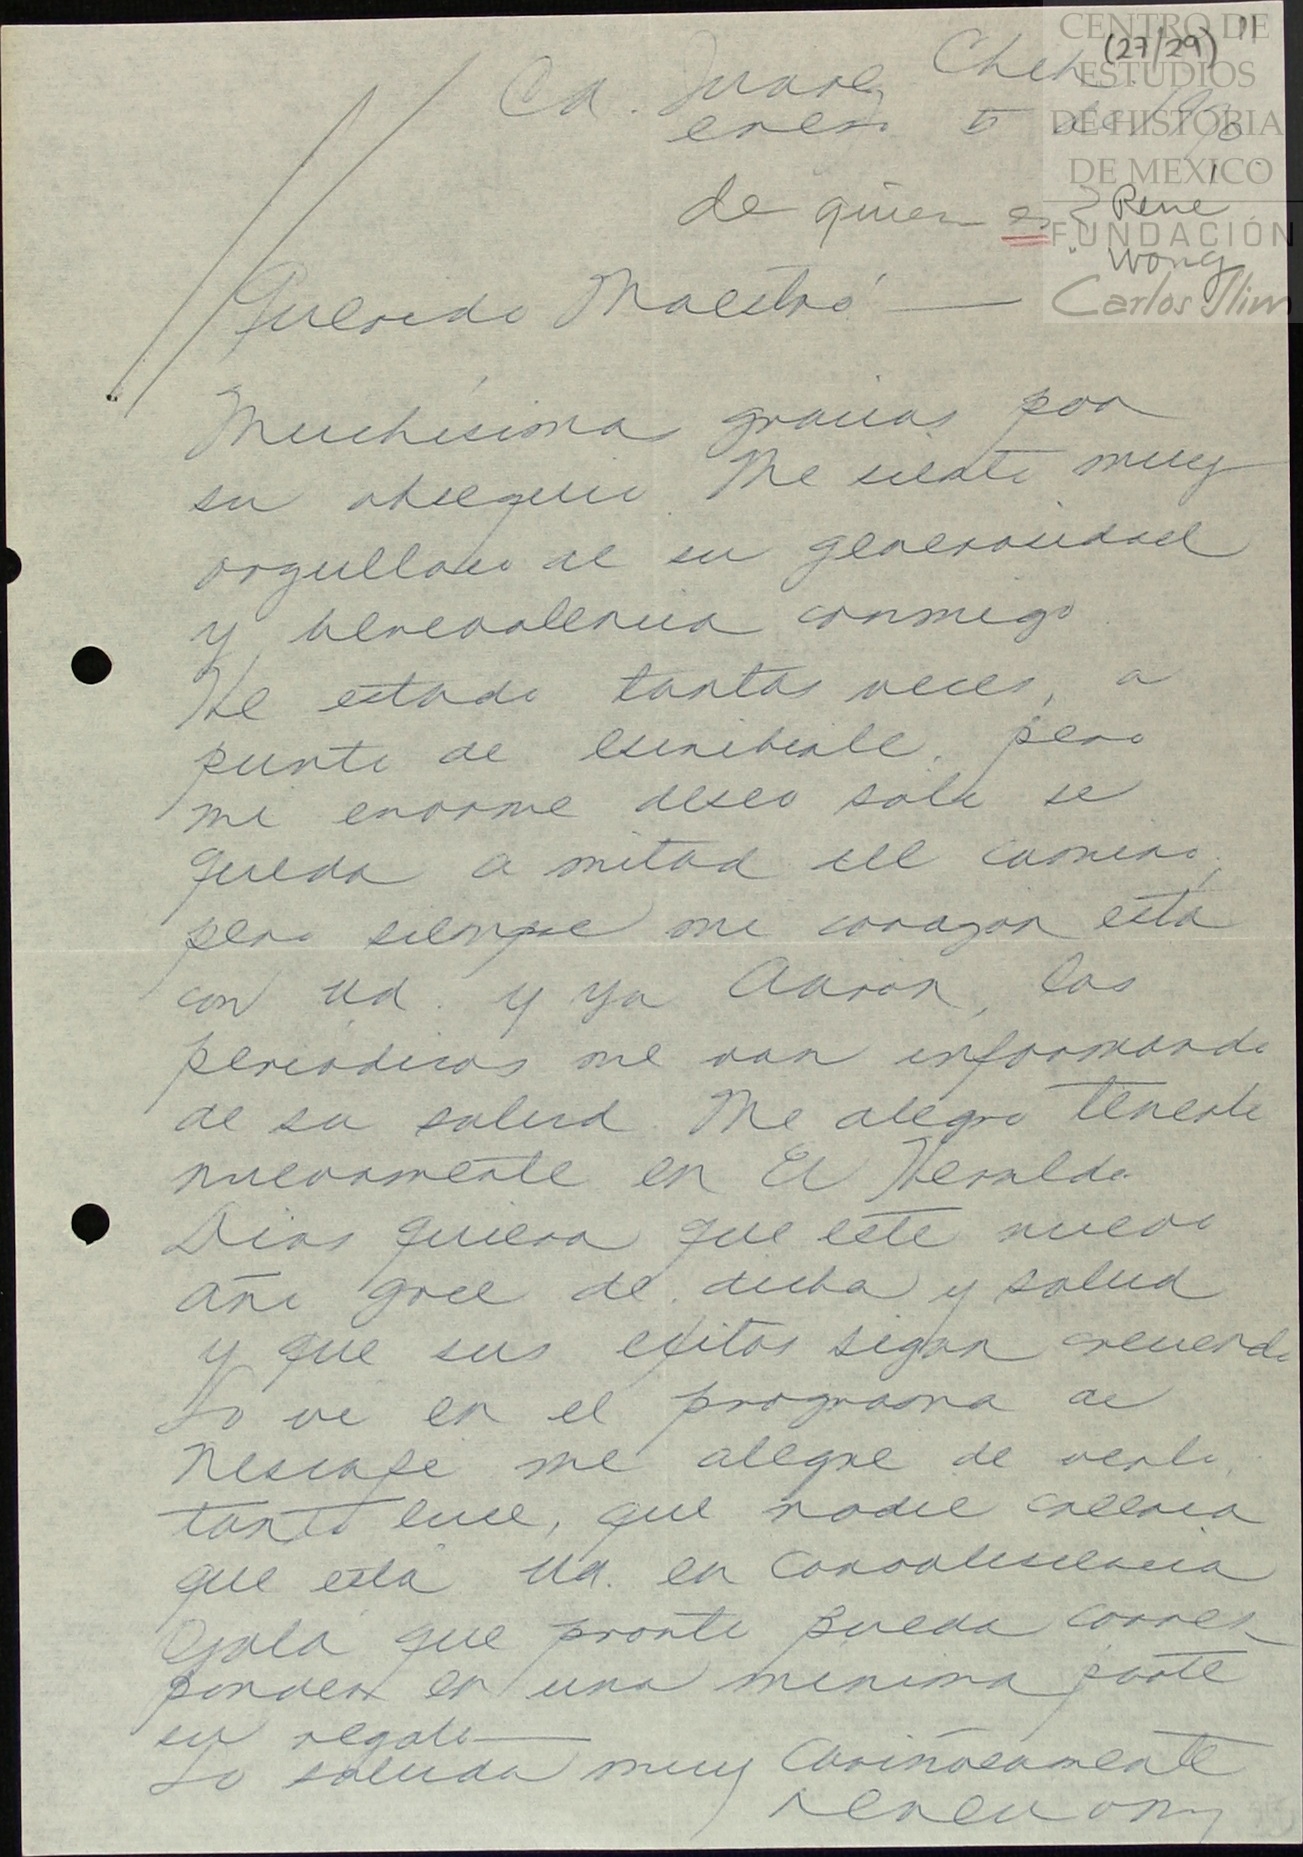 CENTRO DE
ESTUDIOS
DE HISTORIA
DE MEXICO
FUNDACIÓN
Carlos Slim
(27/29) "
Cd. Juarez Chih
enero 5 de 1970
de quien es? René
Wong
Querido Maestro —
Muchísimas gracias por
su obsequio Me siento muy
orgulloso de su generosidad
y benevolencia conmigo.
He estado tantas veces, a
punto de escribirle, pero
mi enorme deseo solo se
queda a mitad del camino,
pero siempre mi corazon esta
con Ud. y ya Aaron, los
periodicos me van informando
de su salud. Me alegro tenerlo
nuevamente en El Heraldo.
Dios quiera que este nuevo
año goce de dicha y salud
y que sus exitos sigan creciendo
Lo vi en el programa de
Nescafe me alegre de verlo,
tanto luce, que nadie creeria
que está Ud. en convalescencia
Ojalá que pronto pueda corres-
ponder en una minima parte
su regalo —
Lo saluda muy cariñosamente
Rene Wong